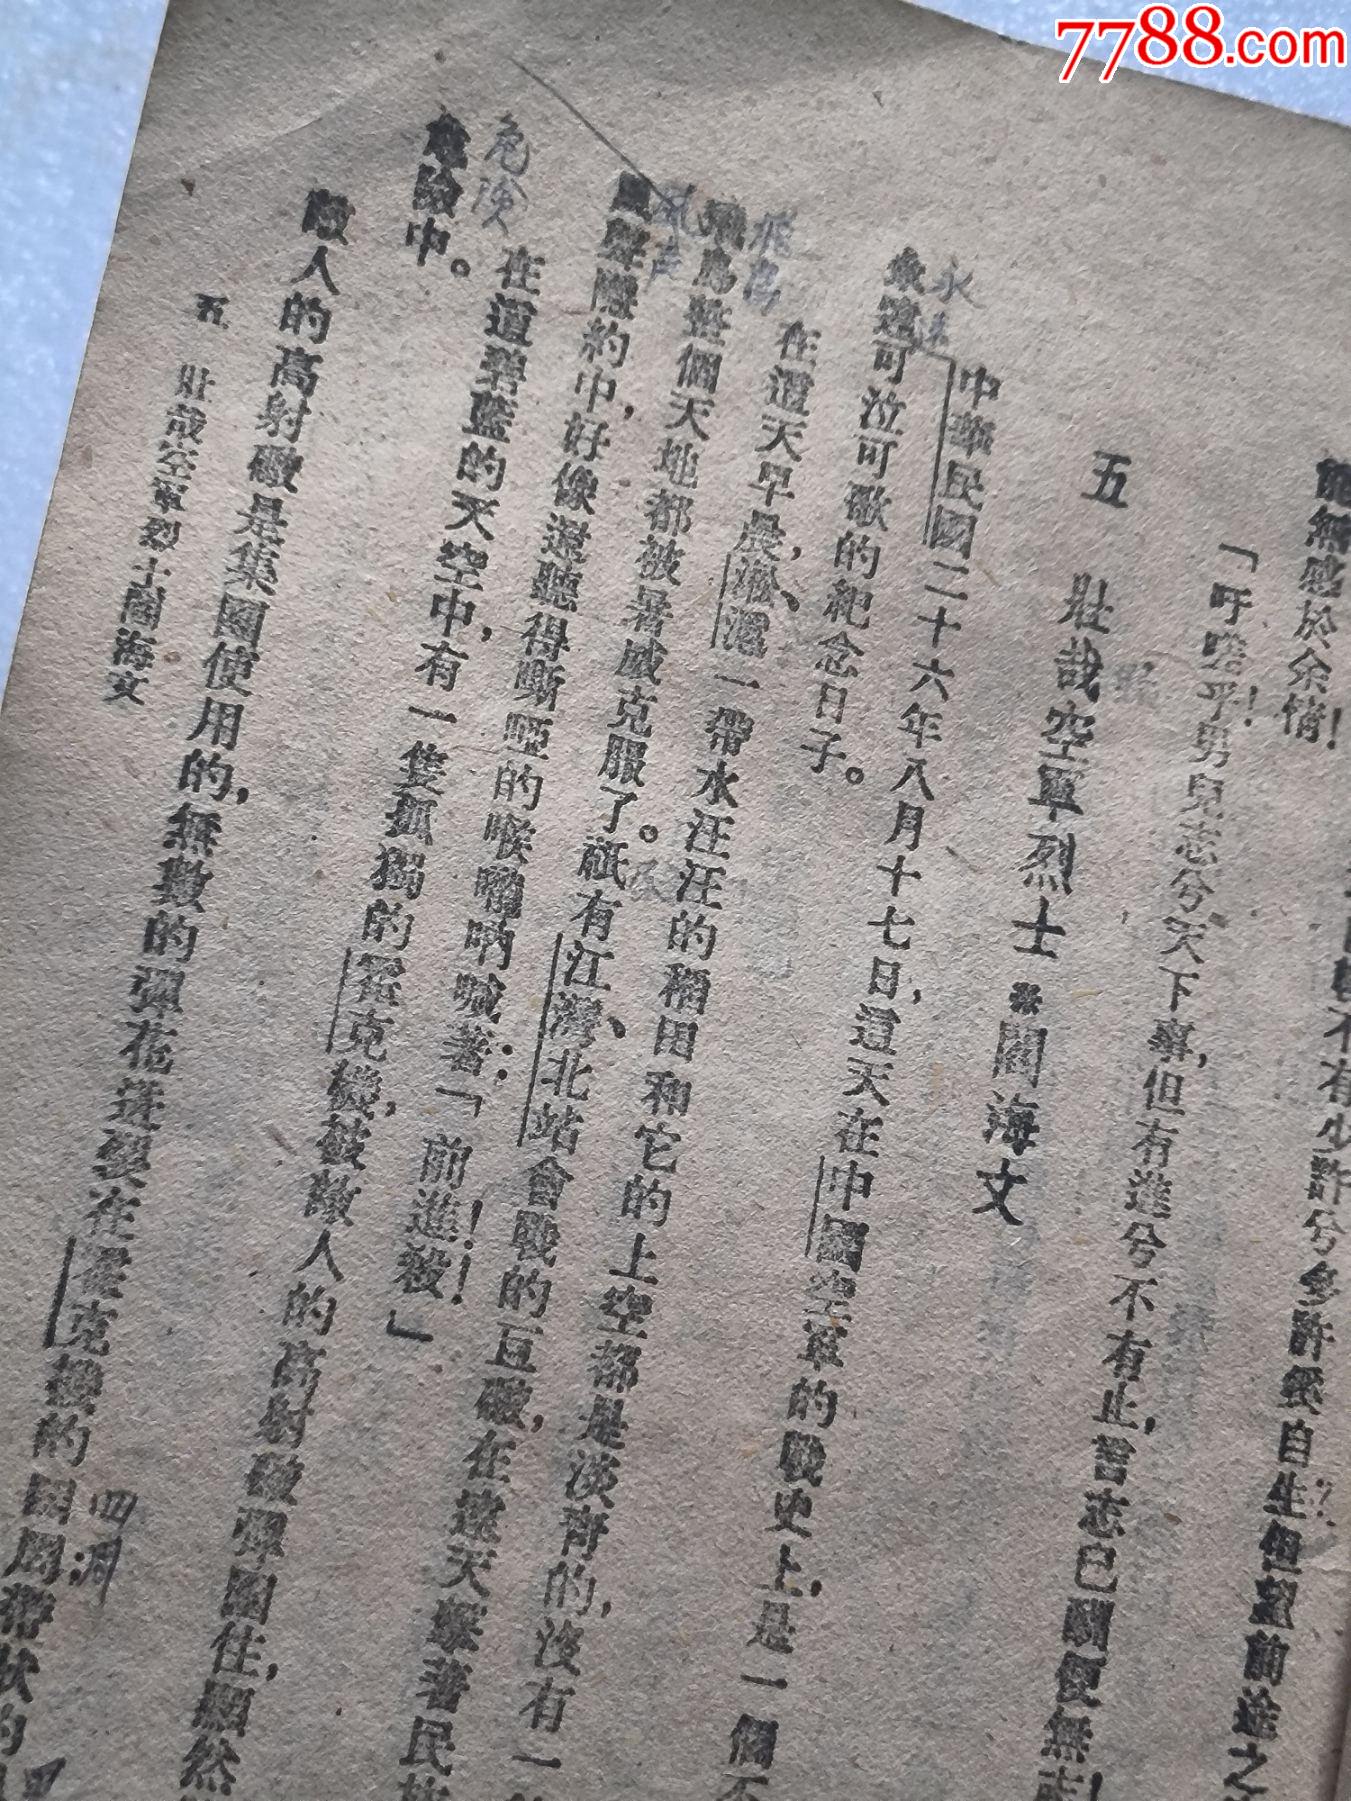 7788.com
能無感於余情！
「吁嗟乎！男兒志兮天下事，但有進兮不有止，言志已酬便無志！
五　壯哉空軍烈士閻海文
中華民國二十六年八月十七日，這天在中國空軍的戰史上，是一個
永遠
永遠可泣可歌的紀念日子。
在這天早晨，淞、滬一帶水汪汪的稻田和它的上空都是淡青的，沒有一
飛鳥
飛鳥整個天地都被暑威克服了。祇有江灣、北站會戰的巨礮，在遠天
風聲
風聲隱約中，好像還聽得嘶啞的喉嚨吶喊著：「前進！殺！」
在這碧藍的天空中，有一隻孤獨的霍克機，被敵人的高射礮彈圍住，顯然
危險
危險中。
敵人的高射礮是集團使用的，無數的彈花迸裂在霍克機的四周，帶狀的
四周
五　壯哉空軍烈士閻海文